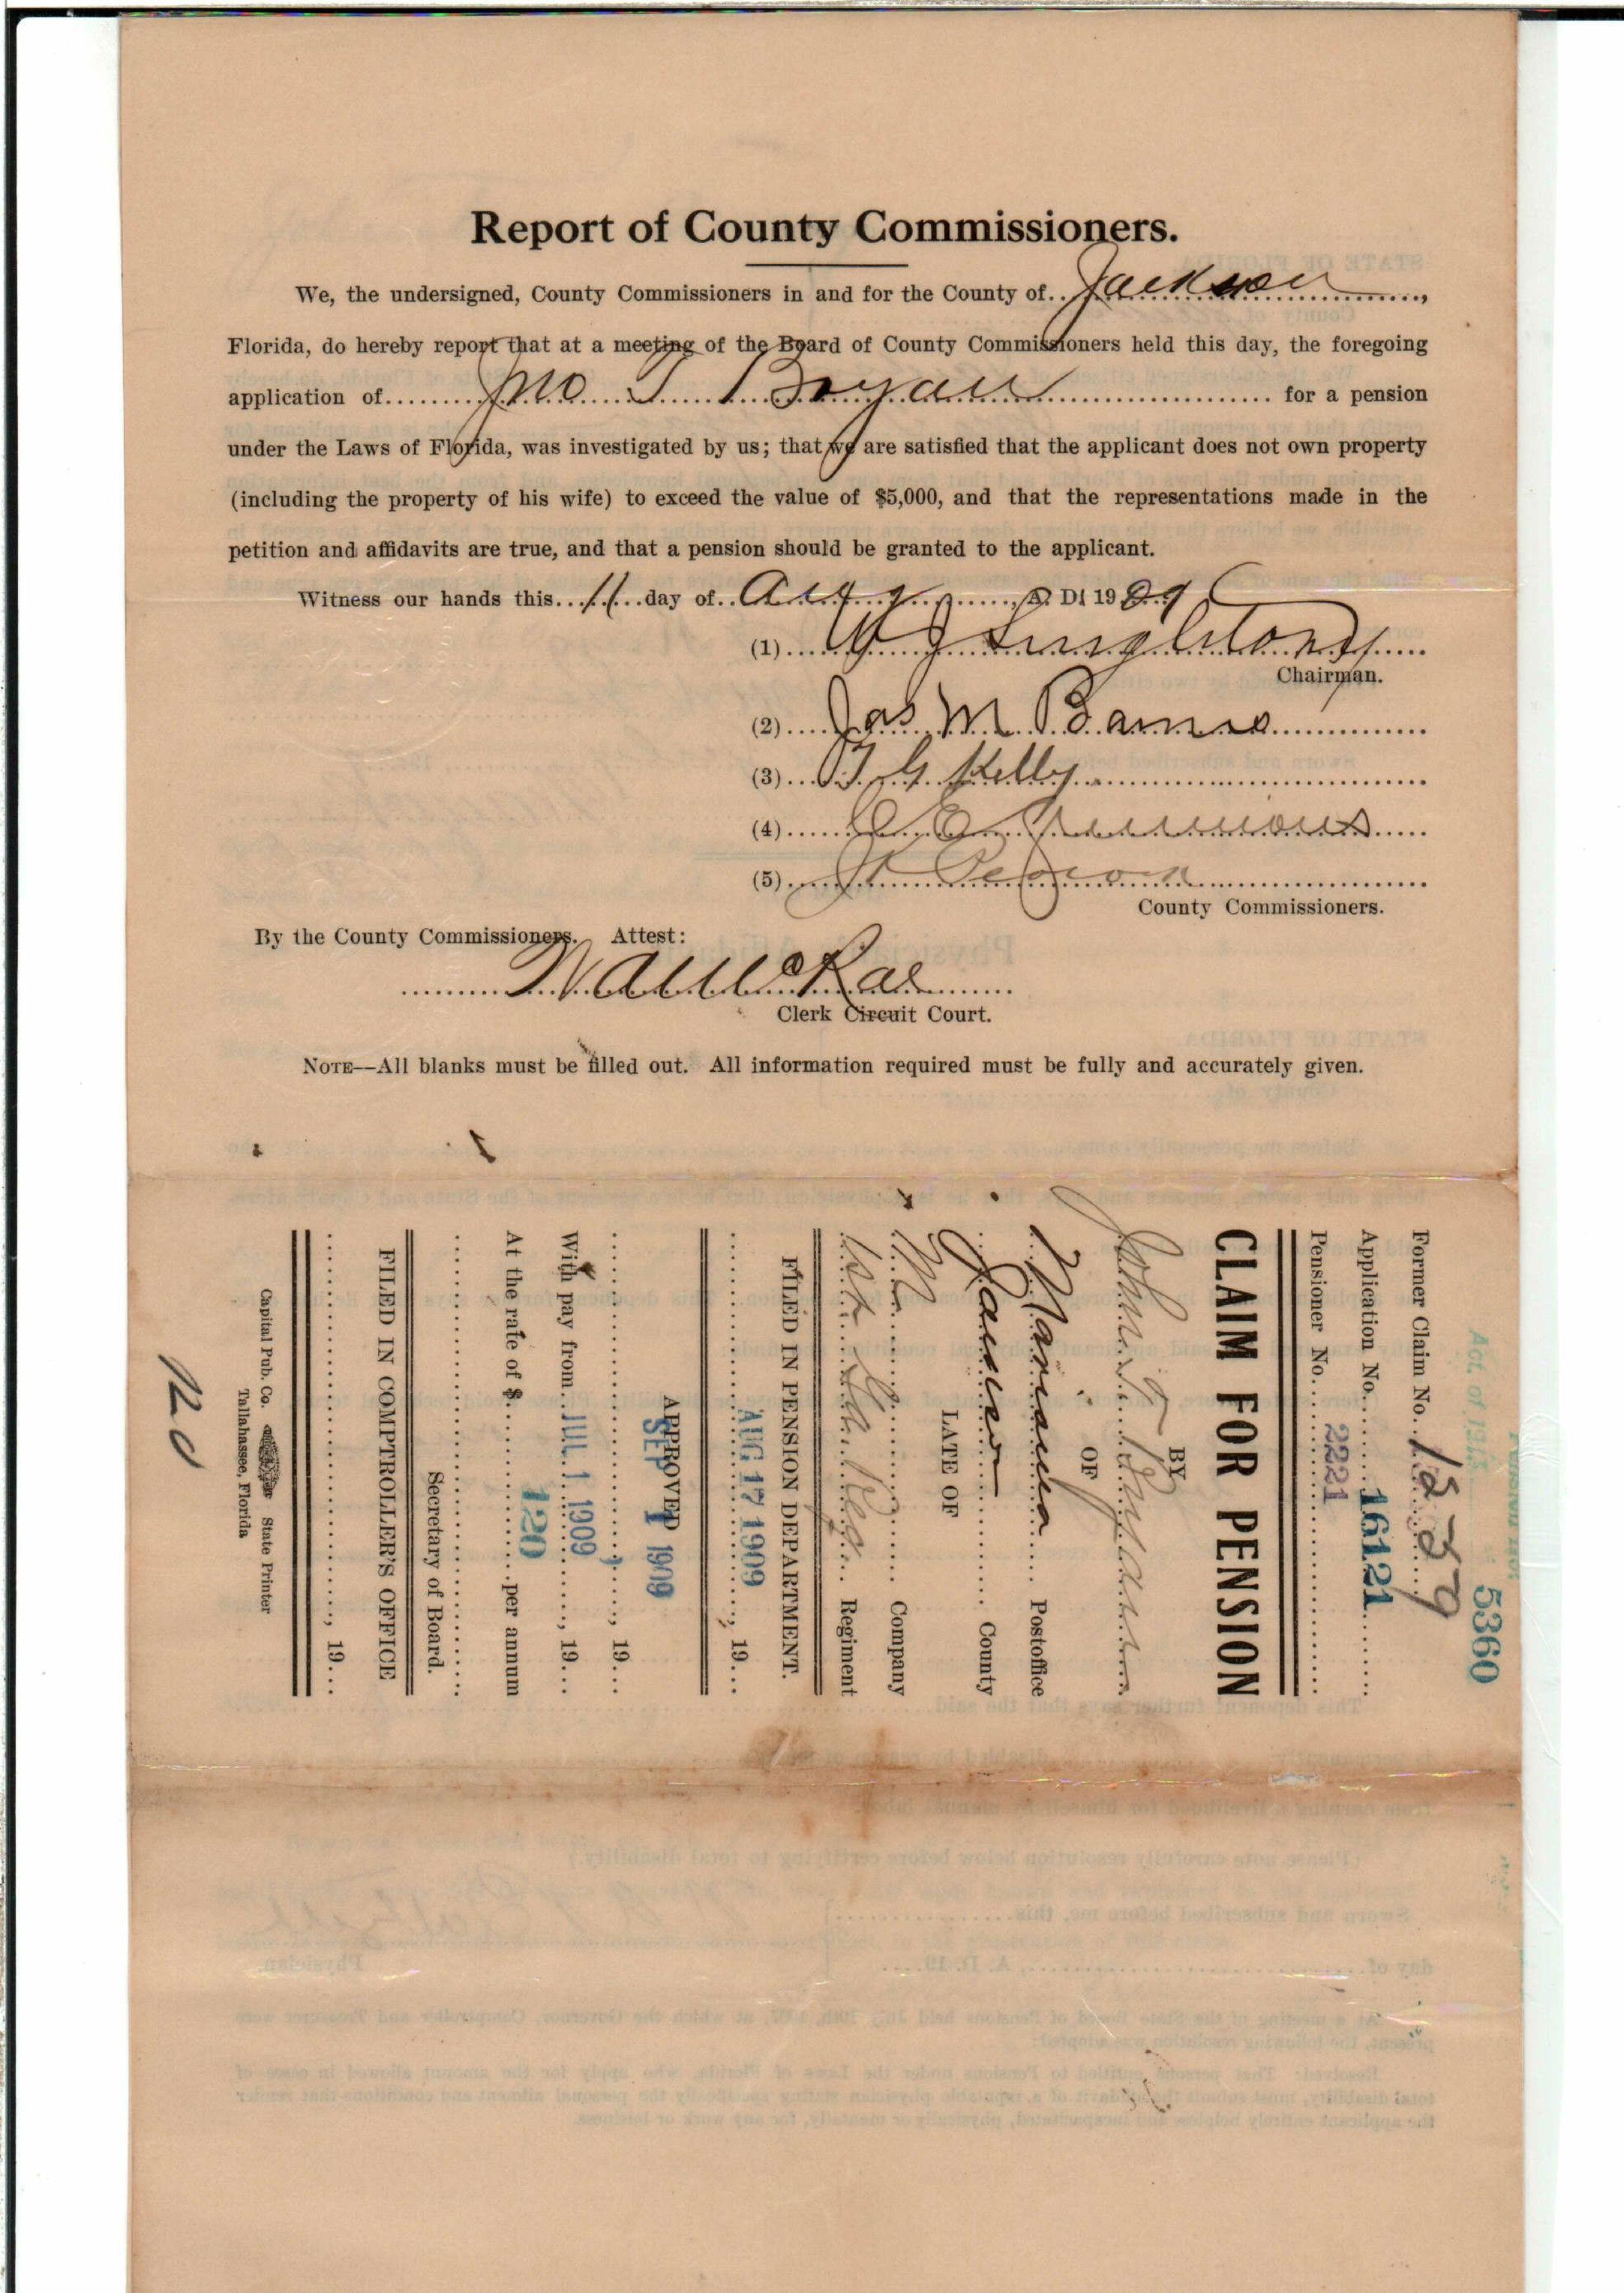 Report of County Commissioners.
We, the undersigned, County Commissioners in and for the County of Jackson,
Florida, do hereby report that at a meeting of the Board of County Commissioners held this day, the foregoing
application of Jno T Bryan for a pension
under the Laws of Florida, was investigated by us; that we are satisfied that the applicant does not own property
(including the property of his wife) to exceed the value of $5,000, and that the representations made in the
petition and affidavits are true, and that a pension should be granted to the applicant.
Witness our hands this 11 day of Aug A. D. 1909
(1) Singletary
Chairman.
(2) Jas M Barnes
(3) T G Kelly
(4)
(5)
County Commissioners.
By the County Commissioners. Attest:
W A McRae
Clerk Circuit Court.
NOTE—All blanks must be filled out. All information required must be fully and accurately given.
Act of 1913 5360
Former Claim No.
Application No. 16121
Pensioner No. 2221
CLAIM FOR PENSION
BY
John T Bryan
OF
Marianna Postoffice
Jackson County
LATE OF
M Company
1st Ga Reg Regiment
FILED IN PENSION DEPARTMENT.
AUG 17 1909, 19
APPROVED
SEP 1 1909, 19
With pay from JUL 1 1909, 19
At the rate of $ 120 per annum
Secretary of Board.
FILED IN COMPTROLLER'S OFFICE
, 19
Capital Pub. Co. State Printer
Tallahassee, Florida
120